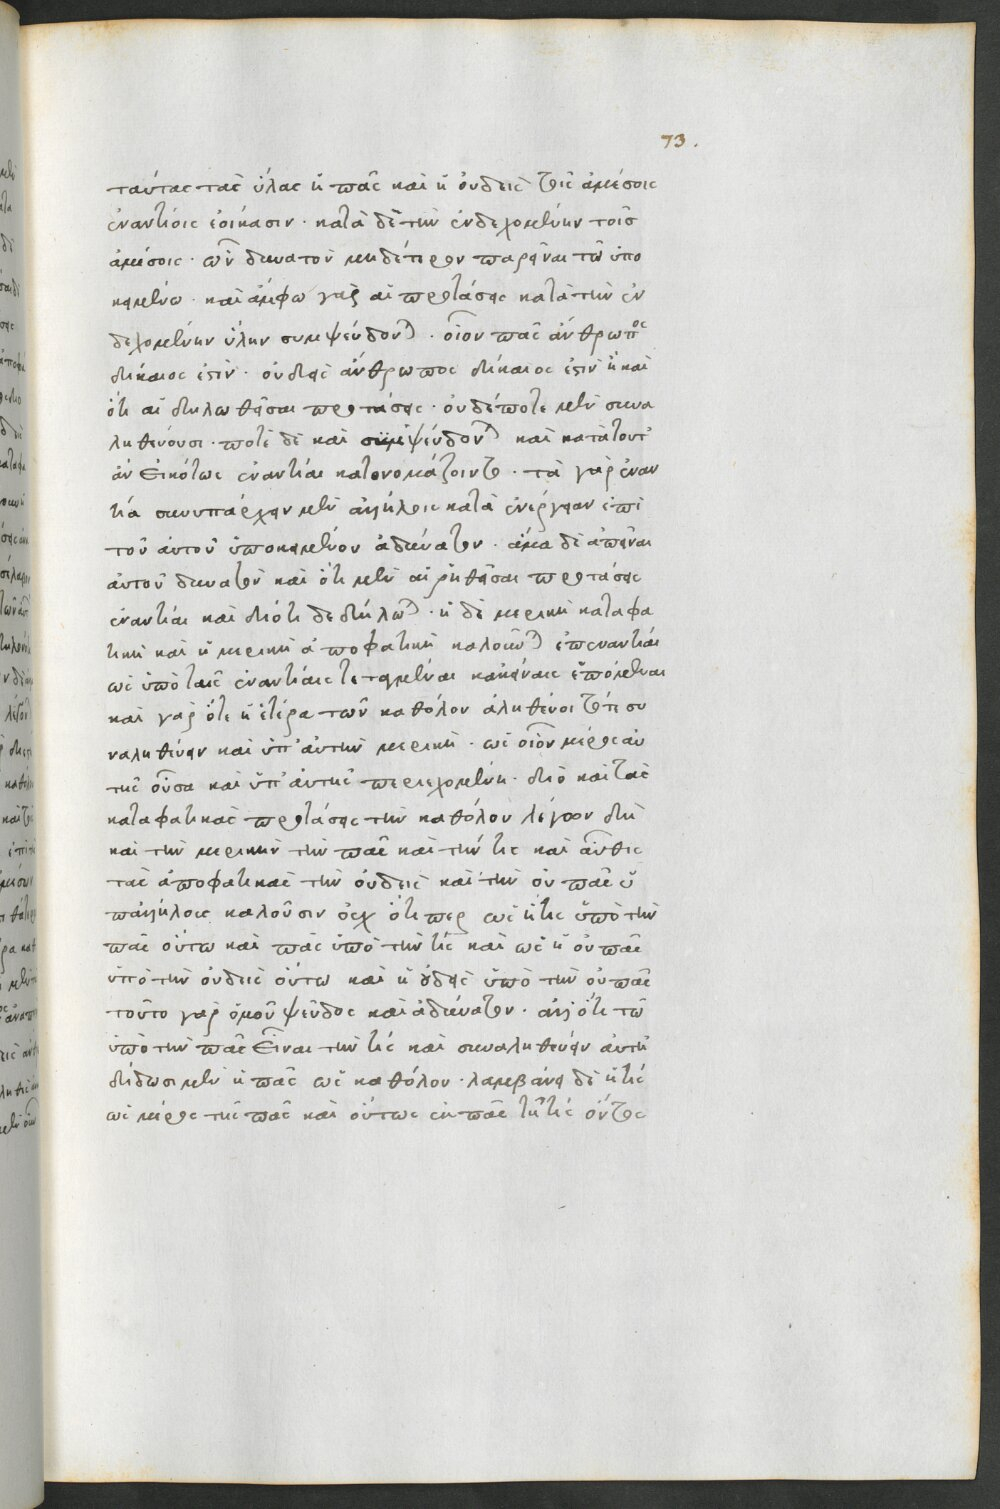 73.
ταύτας τὰς ὕλας ἡ πᾶς καὶ ἡ οὐδεὶς τοῖς ἀμέσοις
ἐναντίοις ἐοίκασιν · κατὰ δὲ τὴν ἐνδεχομένην τοῖς
ἐμμέσοις · ὧν δυνατὸν μηδέτερον παρεῖναι τῶ ὑπο
κειμένω · καὶ ἄμφω γὰρ αἱ προτάσεις κατὰ τὴν ἐν
δεχομένην ὕλην συμψεύδονται · οἷον πᾶς ἄνθρωπος
δίκαιος ἐστὶν · οὐδεὶς ἄνθρωπος δίκαιος ἐστὶν ἢ καὶ
ὅτι αἱ δηλωθεῖσαι προτάσεις · οὐδέποτε μὲν συνα
ληθεύουσι · ποτὲ δὲ καὶ συμψεύδονται καὶ κατὰ τοῦτ'
ἂν εἰκότως ἐναντίαι κατονομάζοιντο · τὰ γὰρ ἐναν
τία συνυπάρχειν μὲν ἀλλήλοις κατὰ ἐνέργειαν ἐπὶ
τοῦ αὐτοῦ ὑποκειμένου ἀδύνατον · ἅμα δὲ ἀπεῖναι
αὐτοῦ δυνατὸν καὶ ὅτι μὲν αἱ ῥηθεῖσαι προτάσεις
ἐναντίαι καὶ διότι δεδήλωται · ἡ δὲ μερικὴ καταφα
τικὴ καὶ ἡ μερικὴ ἀποφατικὴ καλοῦνται ὑπεναντίαι
ὡς ὑπὸ ταῖς ἐναντίαις τεταγμέναι κἀκείναις ἑπόμεναι
καὶ γὰρ ὅτε ἡ ἑτέρα τῶν καθόλου ἀληθεύοι τότε συ
ναληθεύειν καὶ ὑπ' αὐτὴν μερικὴ · ὡς οἷον μέρος αὐ
τῆς οὖσα καὶ ὑπ' αὐτῆς περιεχομένη · διὸ καὶ τὰς
καταφατικὰς προτάσεις τὴν καθόλου λέγουν δὴ
καὶ τὴν μερικὴν τὴν πᾶς καὶ τὴν τὶς καὶ αὖθις
τὰς ἀποφατικὰς τὴν οὐδεὶς καὶ τὴν οὐ πᾶς ὑ
παλλήλους καλοῦσιν οὐχ ὅτιπερ ὡς ἡ τὶς ὑπὸ τὴν
πᾶς οὕτω καὶ πᾶς ὑπὸ τὴν τὶς καὶ ὡς ἡ οὐ πᾶς
ὑπὸ τὴν οὐδεὶς οὕτω καὶ ἡ οὐδεὶς ὑπὸ τὴν οὐ πᾶς
τοῦτο γὰρ ὁμοῦ ψεῦδος καὶ ἀδύνατον · ἀλλ' ὅτι τῶ
ὑπὸ τὴν πᾶς εἶναι τὴν τὶς καὶ συναληθεύειν αὐτῆ
δίδωσι μὲν ἡ πᾶς ὡς καθόλου · λαμβάνει δὲ ἡ τὶς
ὡς μέρος τῆς πᾶς καὶ οὕτως ἐκ πᾶς τῆ τὶς ὄντος